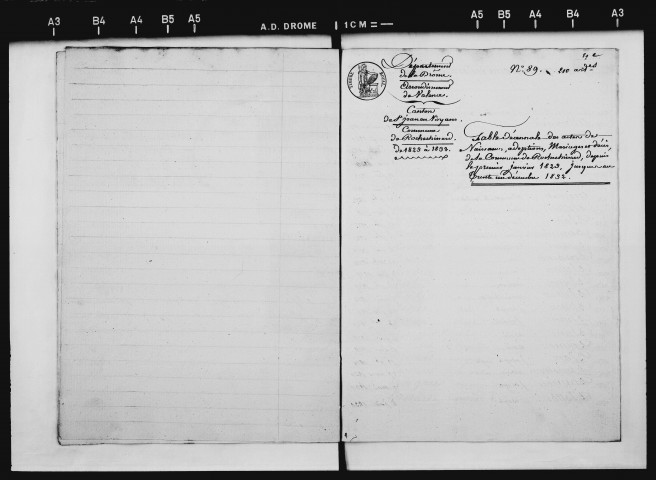 A3 B4 A4 B5 A5 A.D. DROME 1 CM = A5 B5 A4 B4 A3
Département
de la Drôme.
Arrondissement
de Valence.
Canton
de St Jean en Royans.
Commune
de Rochechinard.
De 1823 à 1832.
N° 89.
Table Décennale des actes de
Naissance, adoptions, Mariages et décès,
de la Commune de Rochechinard, depuis
le premier janvier 1823, jusques au
trente un décembre 1832.